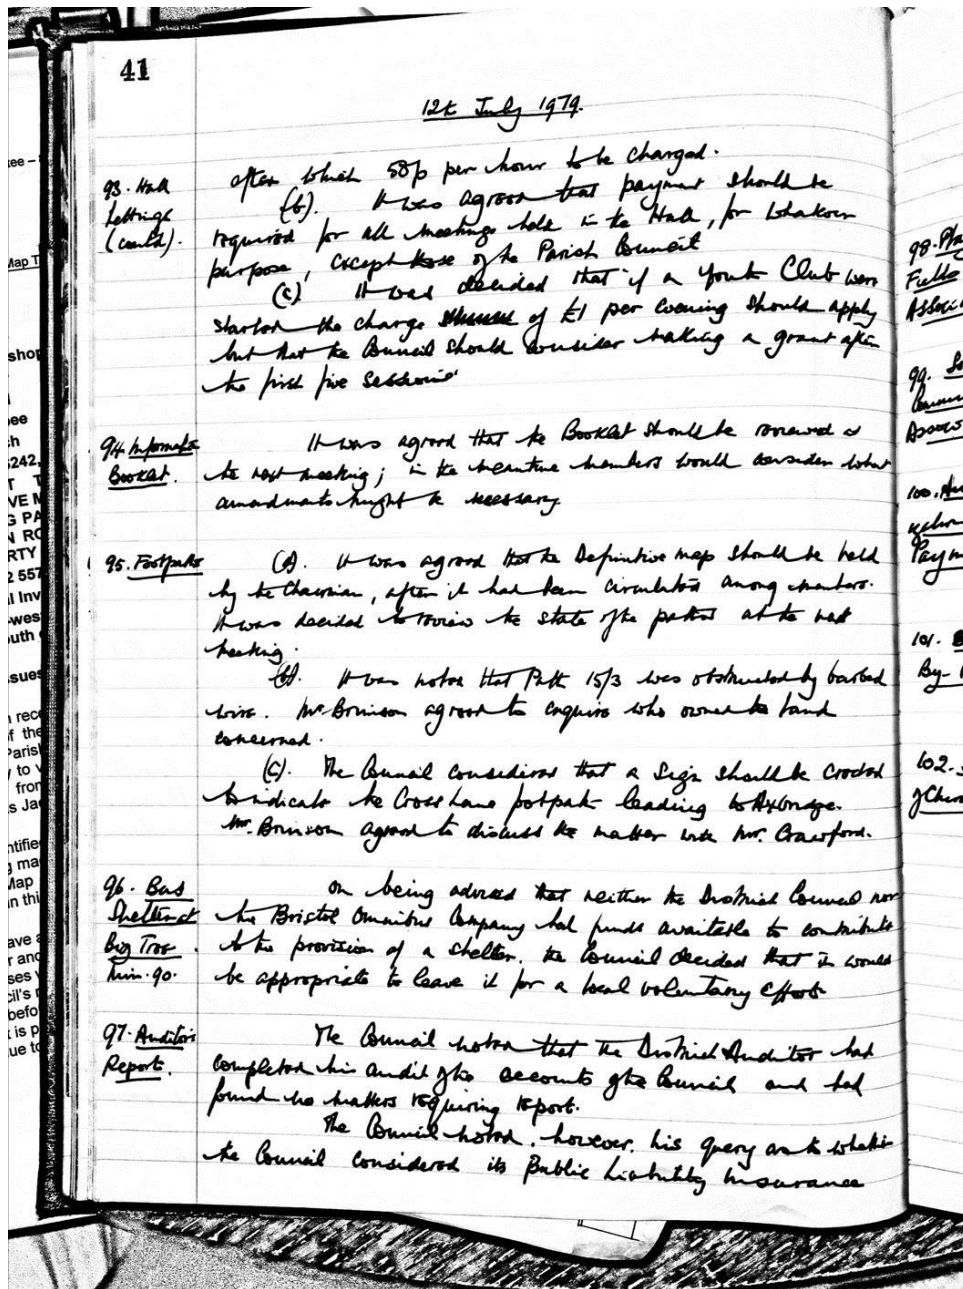 41
12th July 1979.
93. Hall
Lettings
(contd).
after which 50p per hour to be charged.
(b). It was agreed that payment should be
required for all meetings held in the Hall, for whatever
purpose, except those of the Parish Council
(c) It was decided that if a Youth Club were
started the charge of £1 per evening should apply
but that the Council should consider making a grant after
the first five sessions
94 Information
Booklet.
It was agreed that the Booklet should be reviewed at
the next meeting; in the meantime members would consider what
amendments might be necessary
95. Footpaths
(a). It was agreed that the Definitive map should be held
by the Chairman, after it had been circulated among members.
It was decided to review the state of the paths at the next
meeting.
(b). It was noted that Path 15/3 was obstructed by barbed
wire. Mr Brinson agreed to enquire who owned the land
concerned.
(c). The Council considered that a sign should be erected
to indicate the Cross Lane footpath leading to Axbridge.
Mr. Brinson agreed to discuss the matter with Mr. Crawford.
96. Bus
Shelter at
Big Tree.
Min. 90.
On being advised that neither the District Council nor
the Bristol Omnibus Company had funds available to contribute
to the provision of a shelter, the Council decided that it would
be appropriate to leave it for a local voluntary effort
97. Auditor's
Report.
The Council noted that the District Auditor had
completed his audit of the accounts of the Council and had
found no matters requiring report.
The Council noted, however, his query as to whether
the Council considered its Public Liability Insurance
98.
99.
100.
101.
By-
102.